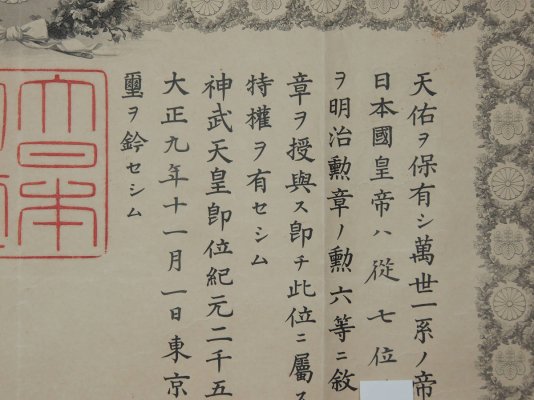 天佑ヲ保有シ萬世一系ノ帝
日本國皇帝ハ從七位
ヲ明治勲章ノ勲六等ニ敘
章ヲ授與ス即チ此位ニ屬ス
特權ヲ有セシム
神武天皇即位紀元二千五
大正九年十一月一日東京
璽ヲ鈐セシム
大日本